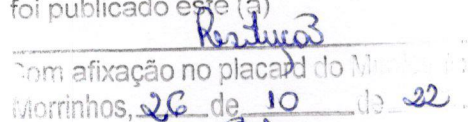 foi publicado este (a)
Resolução
Com afixação no placard do
Morrinhos, 26 de 10 de 22.